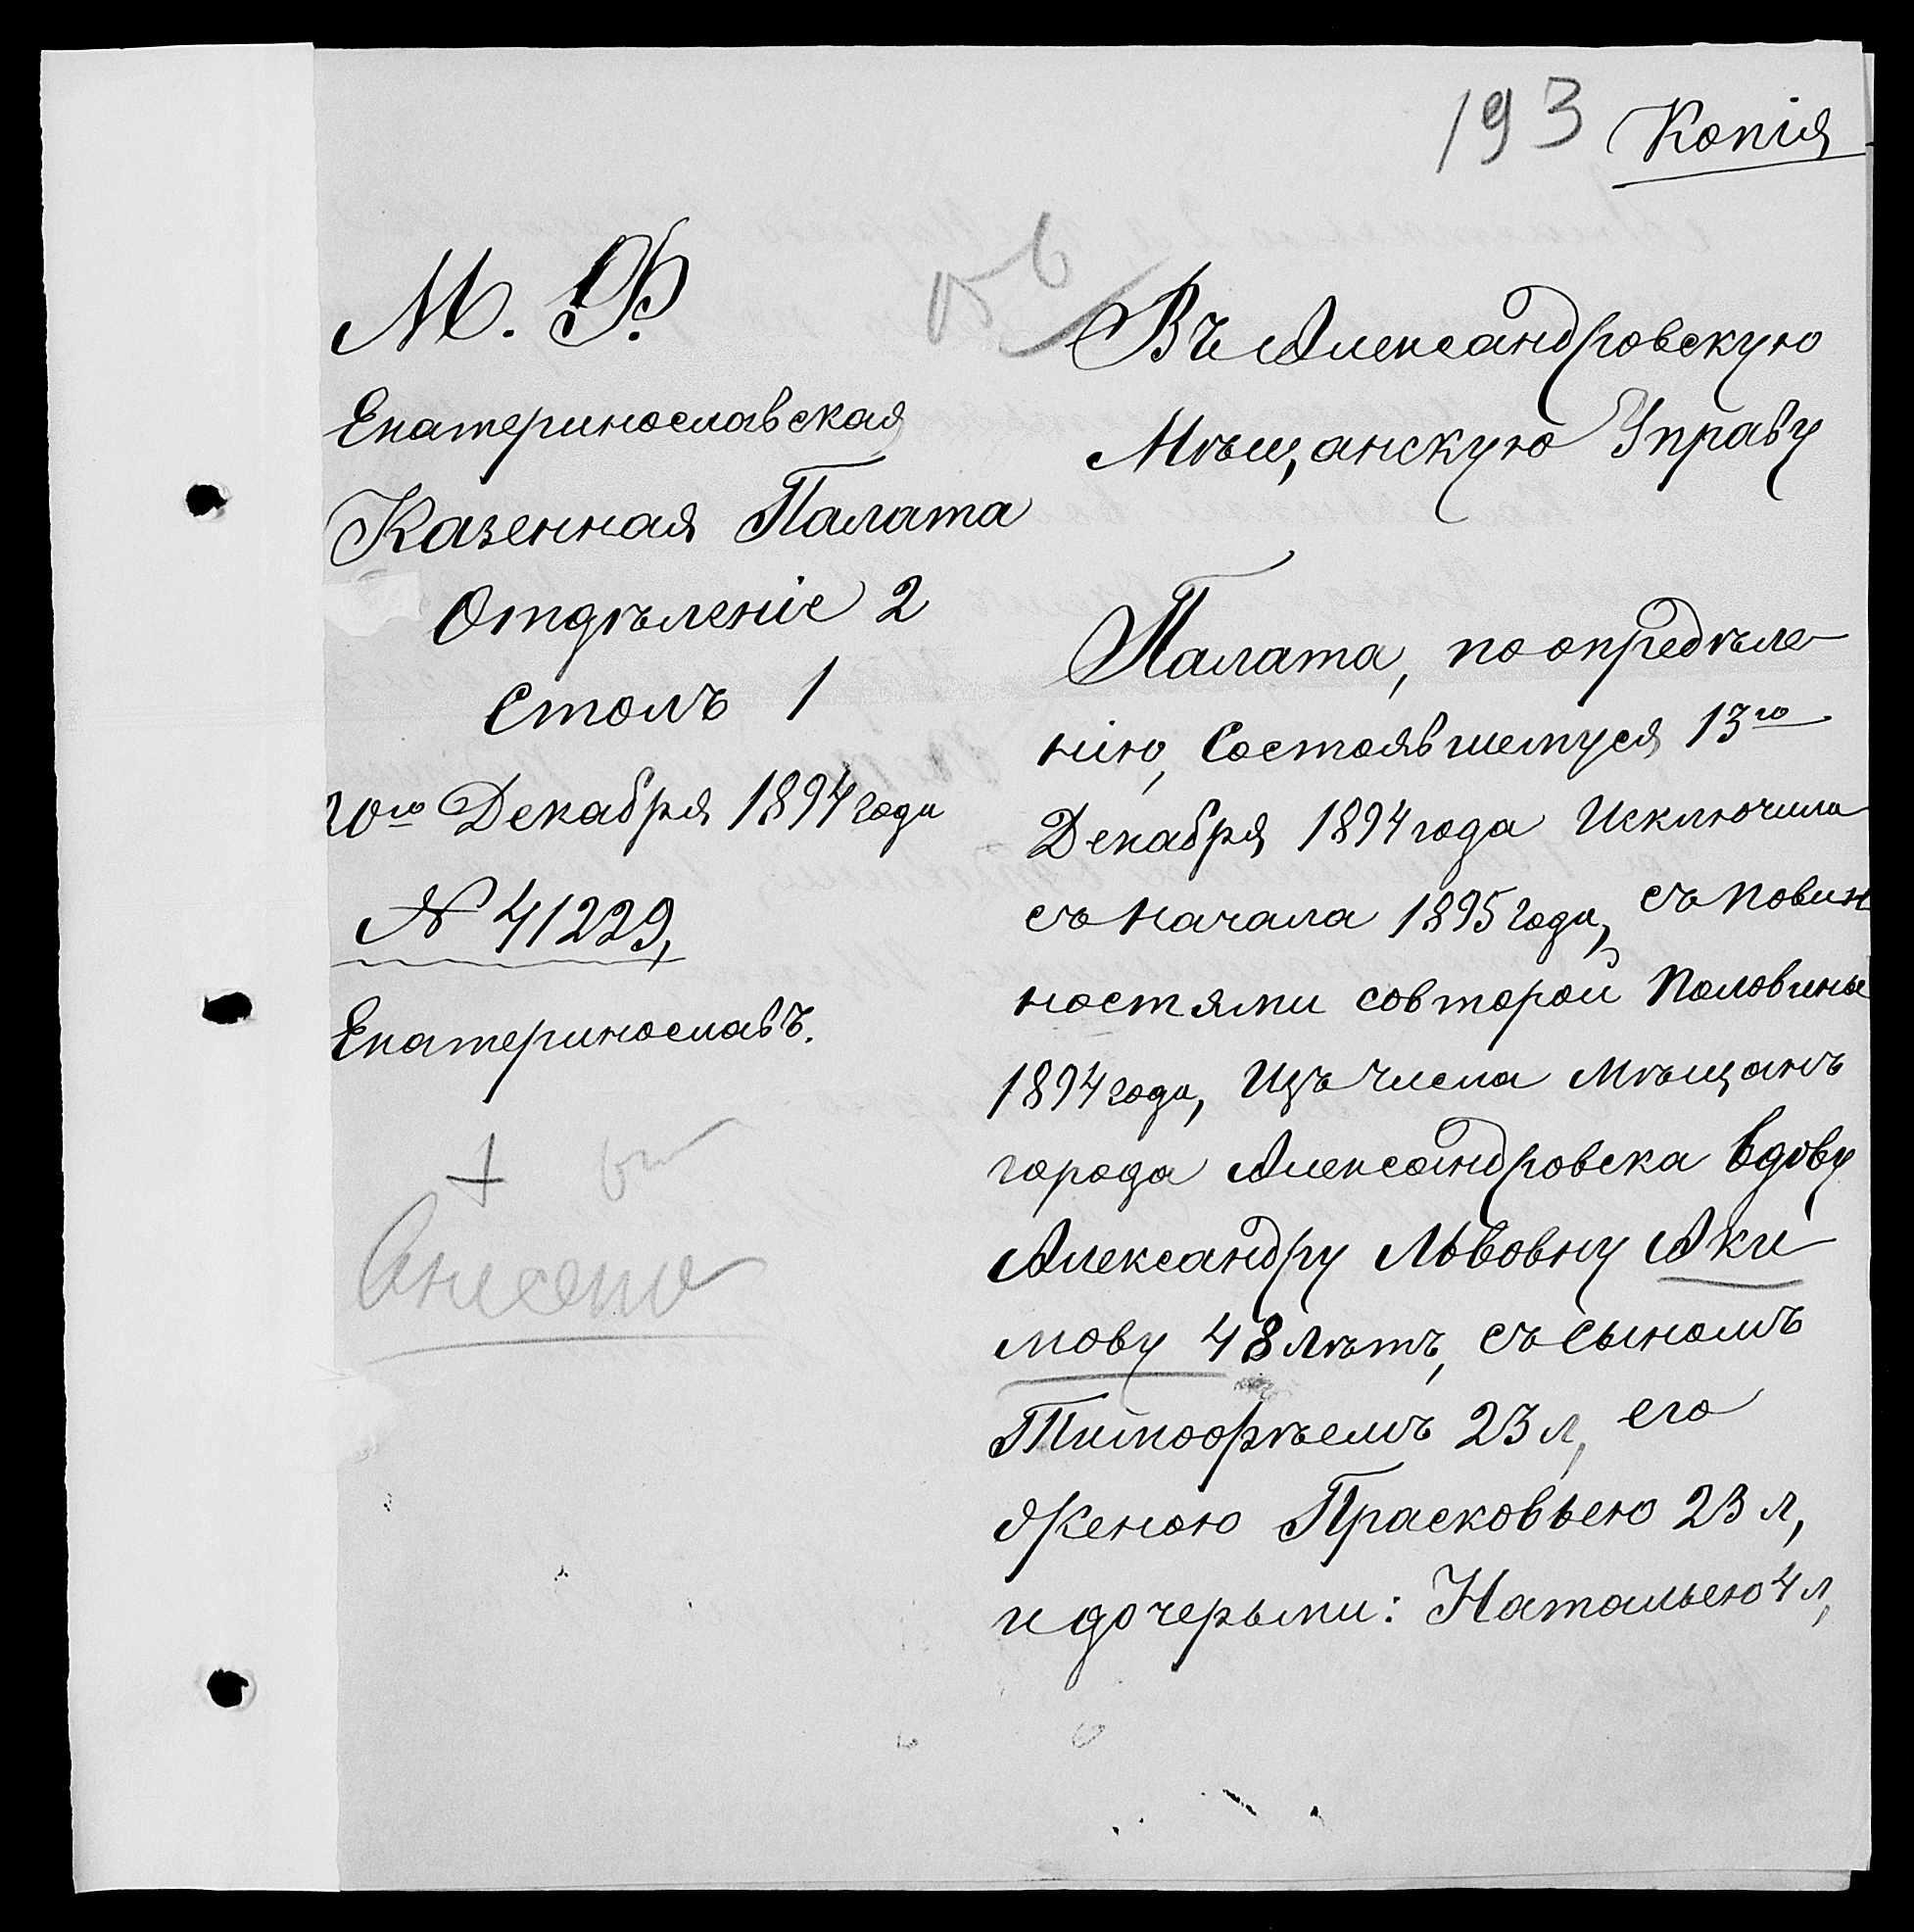 193 Копія
М. Ф.
Екатеринославская
Казенная Палата
Отдѣленіе 2
Столъ 1
20го Декабря 1894 года
№ 41229,
Екатеринославъ.
Въ Александровскую
Мѣщанскую Управу
Палата, по опредѣле-
нію, Состоявшемуся 13го
Декабря 1894 года Исключила
съ начала 1895 года, съ повин
ностями со второй Половины
1894 года, Изъ числа мѣщанъ
города Александровска вдову
Александру Львовну Аки
мову 48 лѣтъ, съ Сыномъ
Тимофѣемъ 23 л, его
Женою Прасковьею 23 л,
и дочерьми: Натальею 4 л,